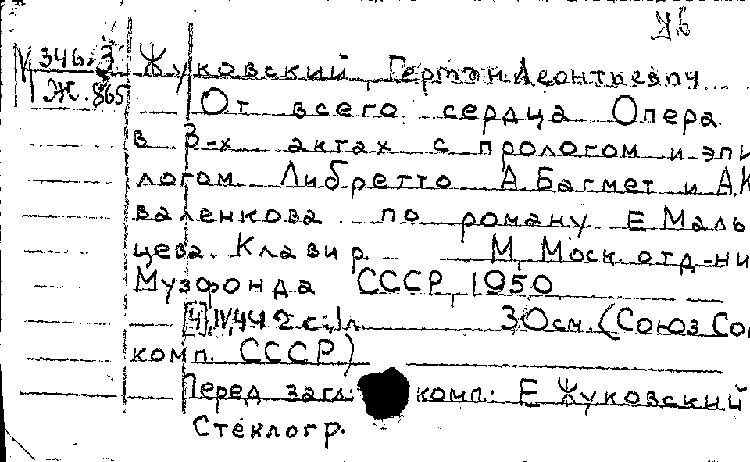 Ув
М 346.3 Жуковский, Герман Леонтьевич
Ж. 865
От всего сердца Опера
в 3-х актах с прологом и эпи
логом Либретто А. Багмет и А. К
валенкова по роману Е Маль
цева. Клавир М, Моск. отд-ни
Музфонда СССР, 1950
[4], IV, 442 с. 1 л. 30 см. (Союз Сов
комп. СССР)
Перед загл.: комп.: Е Жуковский
Стеклогр.